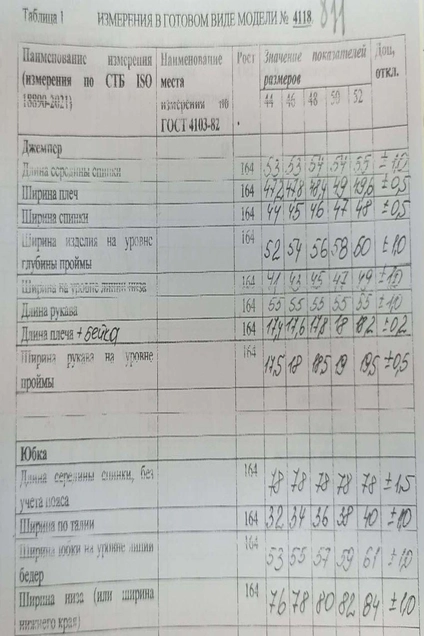 Таблица 1 ИЗМЕРЕНИЯ В ГОТОВОМ ВИДЕ МОДЕЛИ № 4118
Наименование измерения (измерения по СТБ ISO 18890-2021) Наименование места измерения по ГОСТ 4103-82 Рост Значение показателей размеров Доп. откл.
44 46 48 50 52
Джемпер
Длина середины спинки 164 53 53 54 54 55 ±1,0
Ширина плеч 164 47,2 47,8 48,4 49 49,6 ±0,5
Ширина спинки 164 44 45 46 47 48 ±0,5
Ширина изделия на уровне 164 52 54 56 58 60 ±1,0
глубины проймы
Ширина на уровне линии низа 164 41 43 45 47 49 ±1,0
Длина рукава 164 55 55 55 55 55 ±1,0
Длина плеча +бейка 164 17,4 17,6 17,8 18 18,2 ±0,2
Ширина рукава на уровне 164 17,5 18 18,5 19 19,5 ±0,5
проймы
Юбка
Длина середины спинки, без 164 78 78 78 78 78 ±1,5
учета пояса
Ширина по талии 164 32 34 36 38 40 ±1,0
Ширина юбки на уровне линии 164 53 55 57 59 61 ±1,0
бедер
Ширина низа (или ширина 164 76 78 80 82 84 ±1,0
нижнего края)